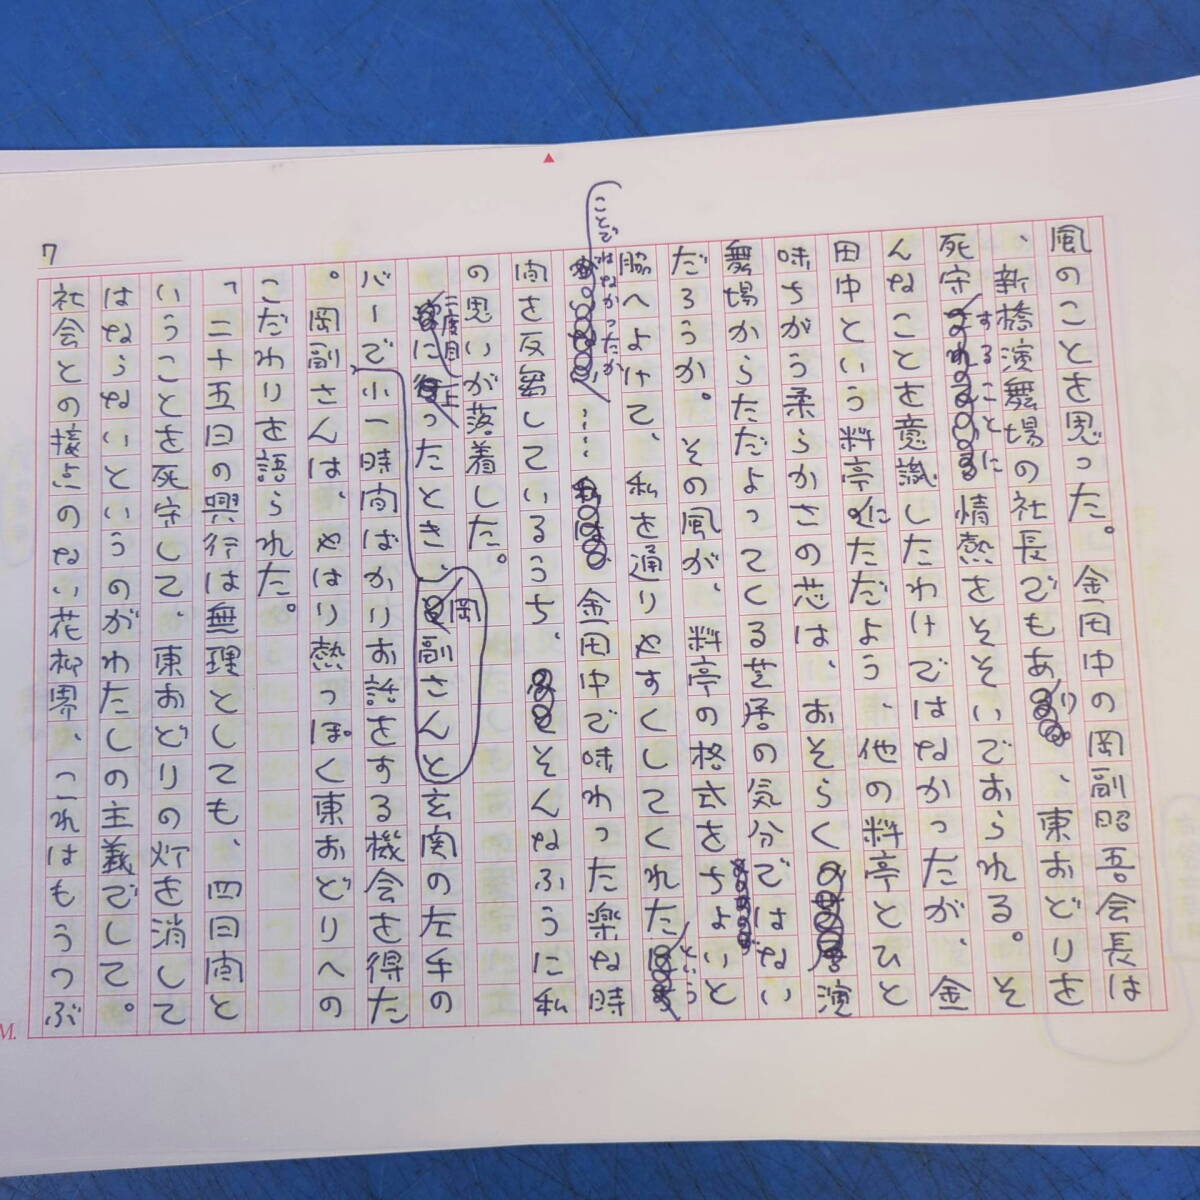 7
風のことを思った。金田中の岡副昭吾会長は
、新橋演舞場の社長でもあり、東おどりを
死守することに情熱をそそいでおられる。そ
んなことを意識したわけではなかったが、金
田中という料亭にただよう、他の料亭とひと
味ちがう柔らかさの芯は、おそらく演
舞場からただよってくる芝居の気分ではない
だろうか。その風が、料亭の格式をちょいと
脇へよけて、私を通りやすくしてくれたという
ことではなかったか……金田中で味わった楽な時
間を反芻しているうち、そんなふうに私
の思いが落着した。
二度目に上ったとき、岡副さんと玄関の左手の
バーで小一時間ばかりお話をする機会を得た
。岡副さんは、やはり熱っぽく東おどりへの
こだわりを語られた。
「二十五日の興行は無理としても、四日間と
いうことを死守して、東おどりの灯を消して
はならないというのがわたしの主義でして。
社会との接点のない花柳界、これはもうつぶ
M.